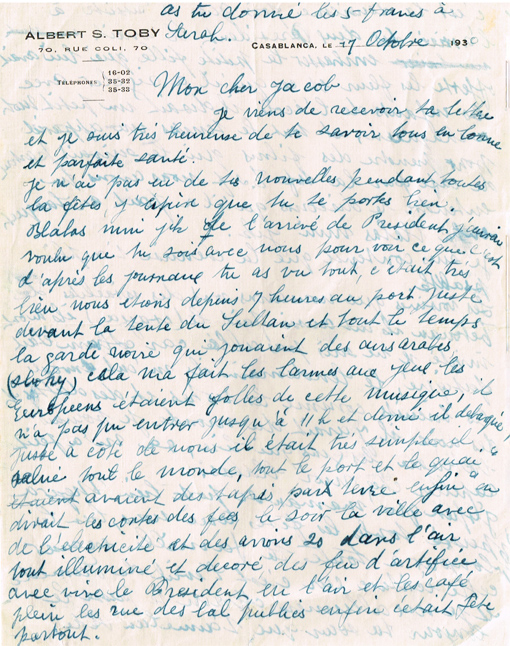 as tu donné les 5 francs à
Sarah.
ALBERT S. TOBY
70, RUE COLI, 70
CASABLANCA, LE 17 Octobre 1930
TÉLÉPHONES
16-02
35-32
35-33
Mon cher Jacob
Je viens de recevoir ta lettre
et je suis très heureuse de te savoir tous en bonne
et parfaite santé.
Je n'ai pas eu de tes nouvelles pendant toutes
la fêtes j'espère que tu te portes bien.
de l'arrivé de President j'aurais
voulu que tu sois avec nous pour voir ce que c'est
d'après les journaux tu as vu tout, c'était très
bien nous étions depuis 7 heures au port juste
devant la tente du Sultan et tout le temps
la garde noire qui jouaient des airs arabes
cela m'a fait les larmes aux yeux les
Européens étaient folles de cette musique, il
n'a pas pu entrer jusqu'à 11 h et demi il débarqué,
juste à coté de nous il était très simple il
salué tout le monde, tout le port et le quai
étaient avaient des tapis par terre enfin "on
dirait les contes des fées le soir la ville avec
de l'électricité et des avions 20 dans l'air
tout illuminé et décoré des feu d'artifice
avec vive le President en l'air et les café
plein les rue des bal publics enfin c'était fête
partout.